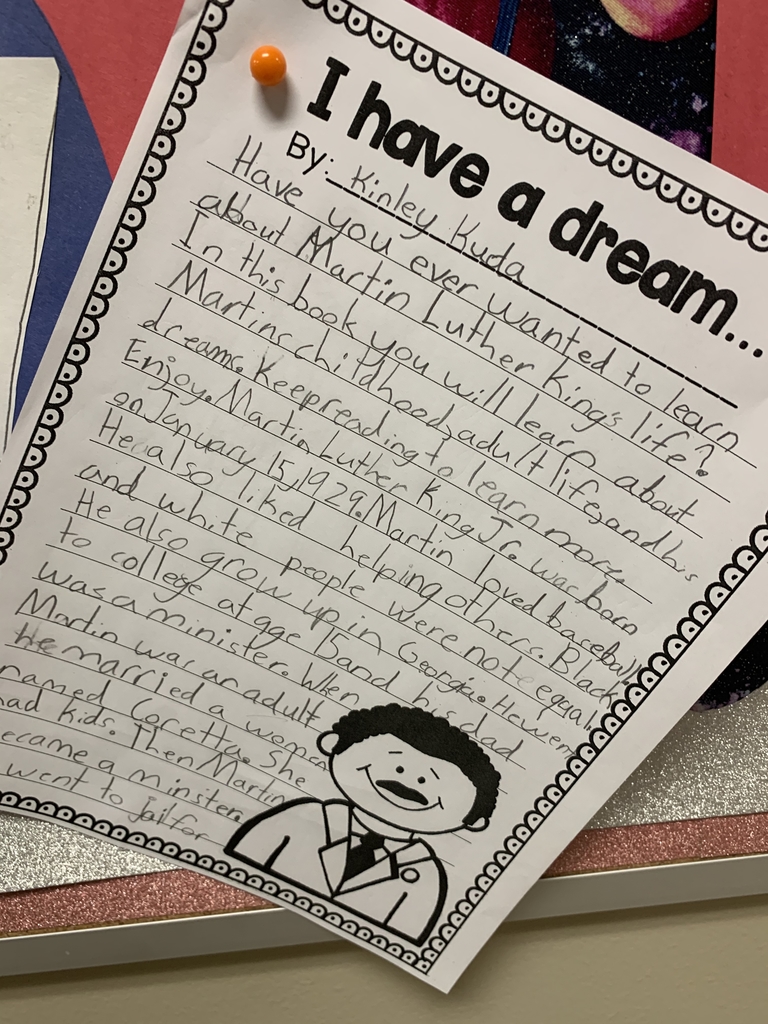 I have a dream...
By: Kinley Kuda
Have you ever wanted to learn
about Martin Luther King's life?
In this book you will learn about
Martins childhood, adult life, and his
dreams. Keep reading to learn more.
Enjoy. Martin Luther King Jr. was born
on January 15, 1929. Martin loved baseball.
He also liked helping others. Black
and white people were not equal.
He also grow up in Georgia. He went
to college at age 15 and his dad
was a minister. When
Martin was an adult
He married a women
named Coretta. She
had kids. Then Martin
ecame a minister.
went to Jail for